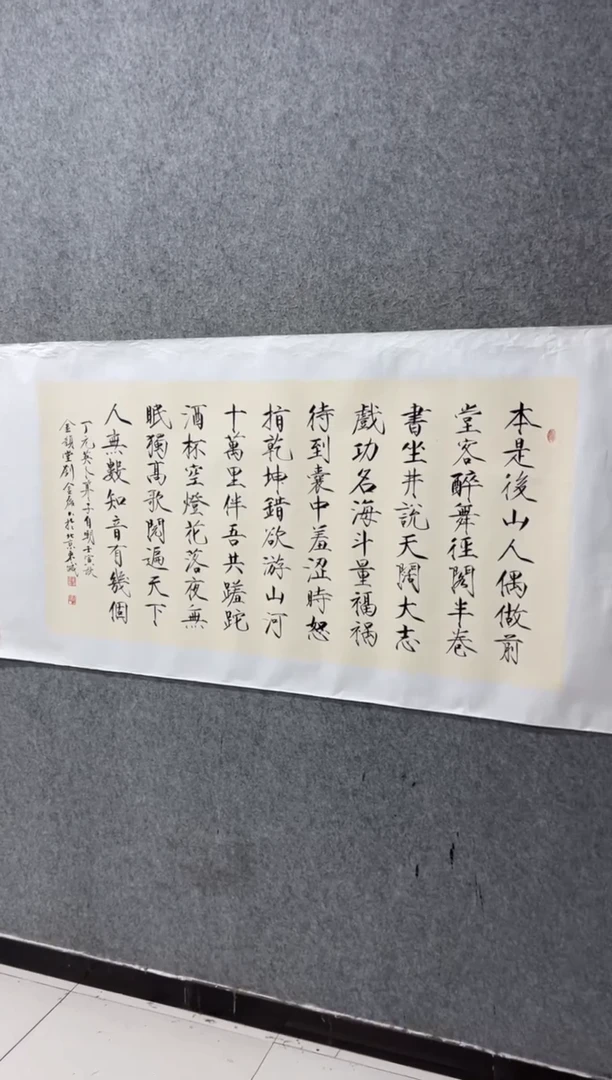 本是後山人偶做前
堂客醉舞徑閣半卷
書坐井說天闊大志
戲功名海斗量福禍
待到囊中羞澀時怒
指乾坤錯欲游山河
十萬里伴吾共蹉跎
酒杯空燈花落夜無
眠獨高歌閱遍天下
人無數知音有幾個
丁元英卜算子自嘲壬寅秋
金韻堂劉金於北京東城